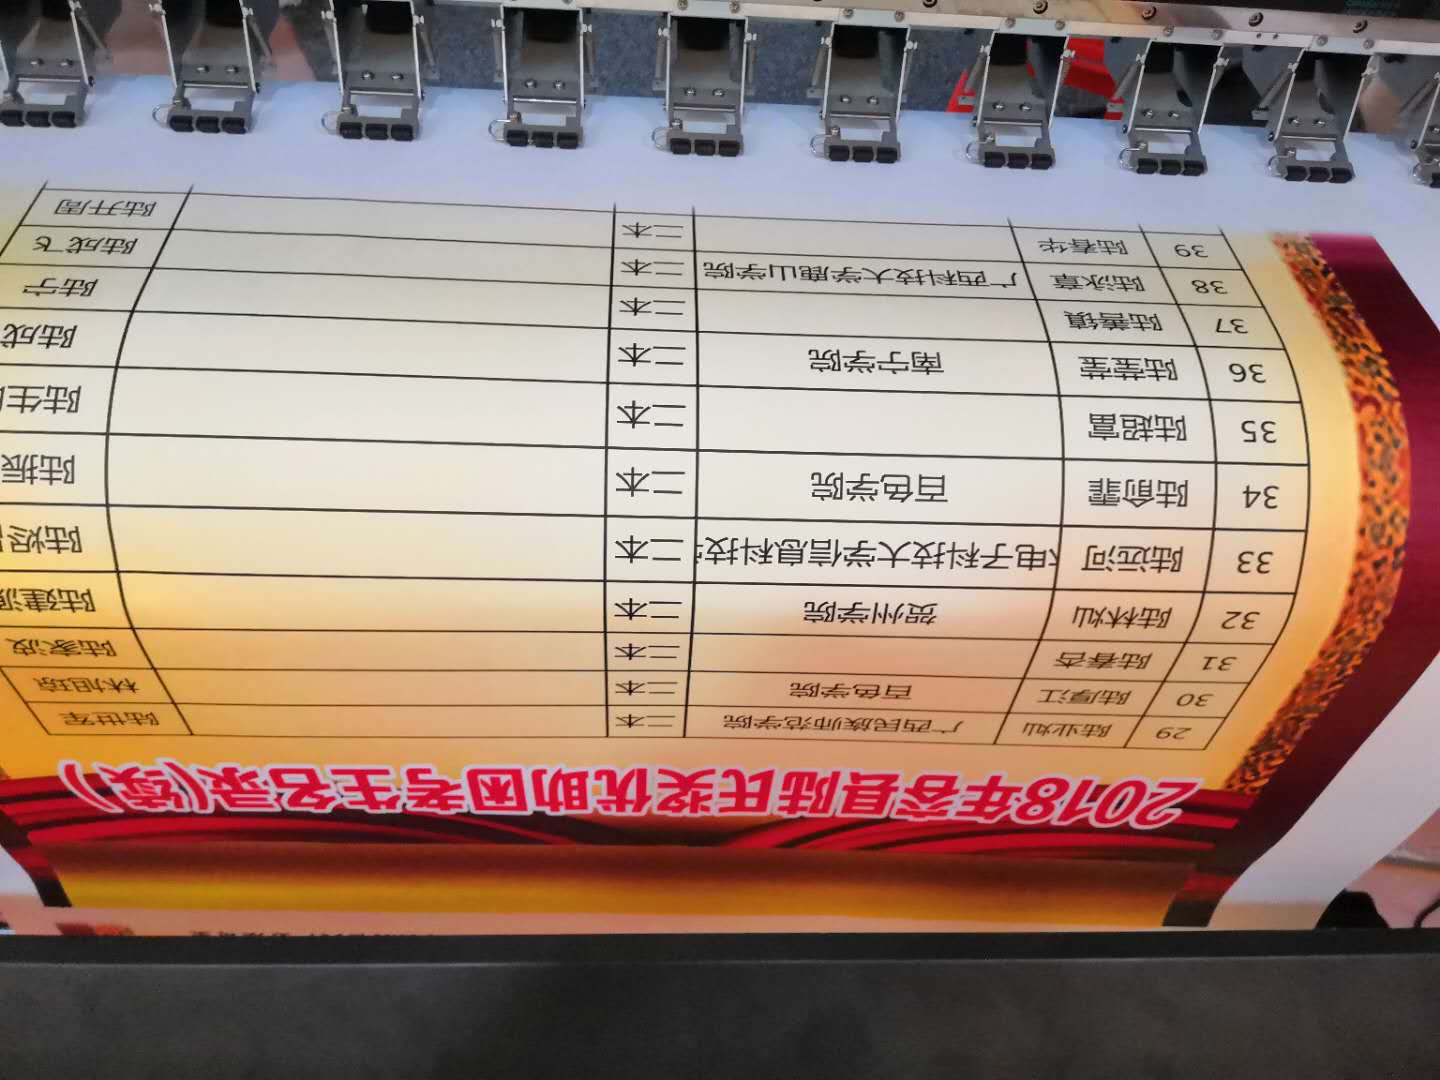 2018年容县陆氏奖优助困考生名录(续)
29 陆业灿 广西民族师范学院 二本 陆世军
30 陆厚江 百色学院 二本 林旭琼
31 陆春杏 二本 陆家波
32 陆林灿 贺州学院 二本 陆建源
33 陆远河 电子科技大学信息科技 二本 陆烬
34 陆俞霏 百色学院 二本 陆振
35 陆超富 二本 陆生
36 陆莹莹 南宁学院 二本 陆成
37 陆善镇 二本 陆宁
38 陆泳章 广西科技大学鹿山学院 二本 陆成飞
39 陆春华 二本 陆开周